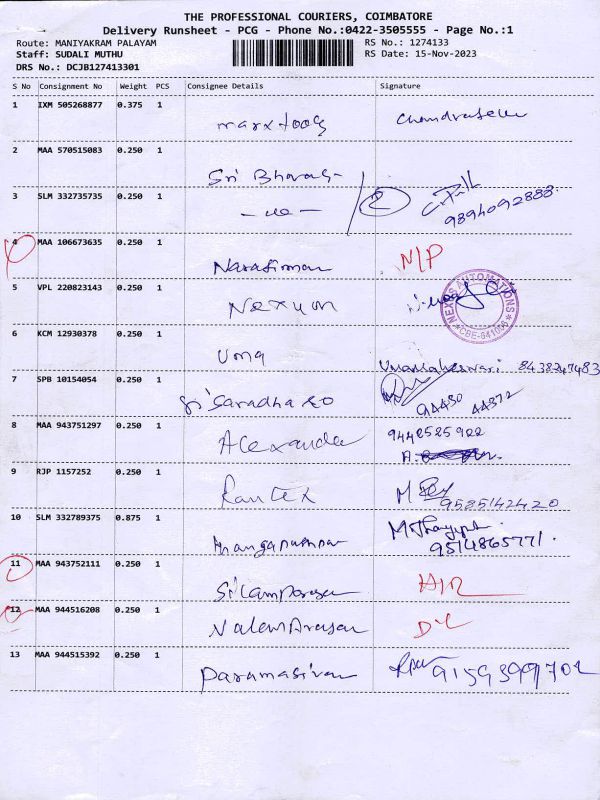 THE PROFESSIONAL COURIERS, COIMBATORE
Delivery Runsheet - PCG - Phone No.:0422-3505555 - Page No.:1
Route: MANIYAKRAM PALAYAM
RS No.: 1274133
Staff: SUDALI MUTHU
RS Date: 15-Nov-2023
DRS No.: DCJB127413301
S No Consignment No Weight PCS Consignee Details Signature
1 IXM 505268877 0.375 1
2 MAA 570515083 0.250 1 Sri Bharath
3 SLM 332735735 0.250 1 2
9894092888
4 MAA 106673635 0.250 1 Narasimman N/P
5 VPL 220823143 0.250 1 Nexun
NEXUS AUTOMATIONS
CBE-641006
6 KCM 12930378 0.250 1 Uma Umamaheswari 8438247483
7 SPB 10154054 0.250 1 Sri Saradha
94430 44372
8 MAA 943751297 0.250 1 Alexander 9442525922
9 RJP 1157252 0.250 1 Rantex M
9585142420
10 SLM 332789375 0.875 1
9514865771
11 MAA 943752111 0.250 1 Silamparasan
12 MAA 944516208 0.250 1 D/L
13 MAA 944515392 0.250 1 Paramasivan 9159399702